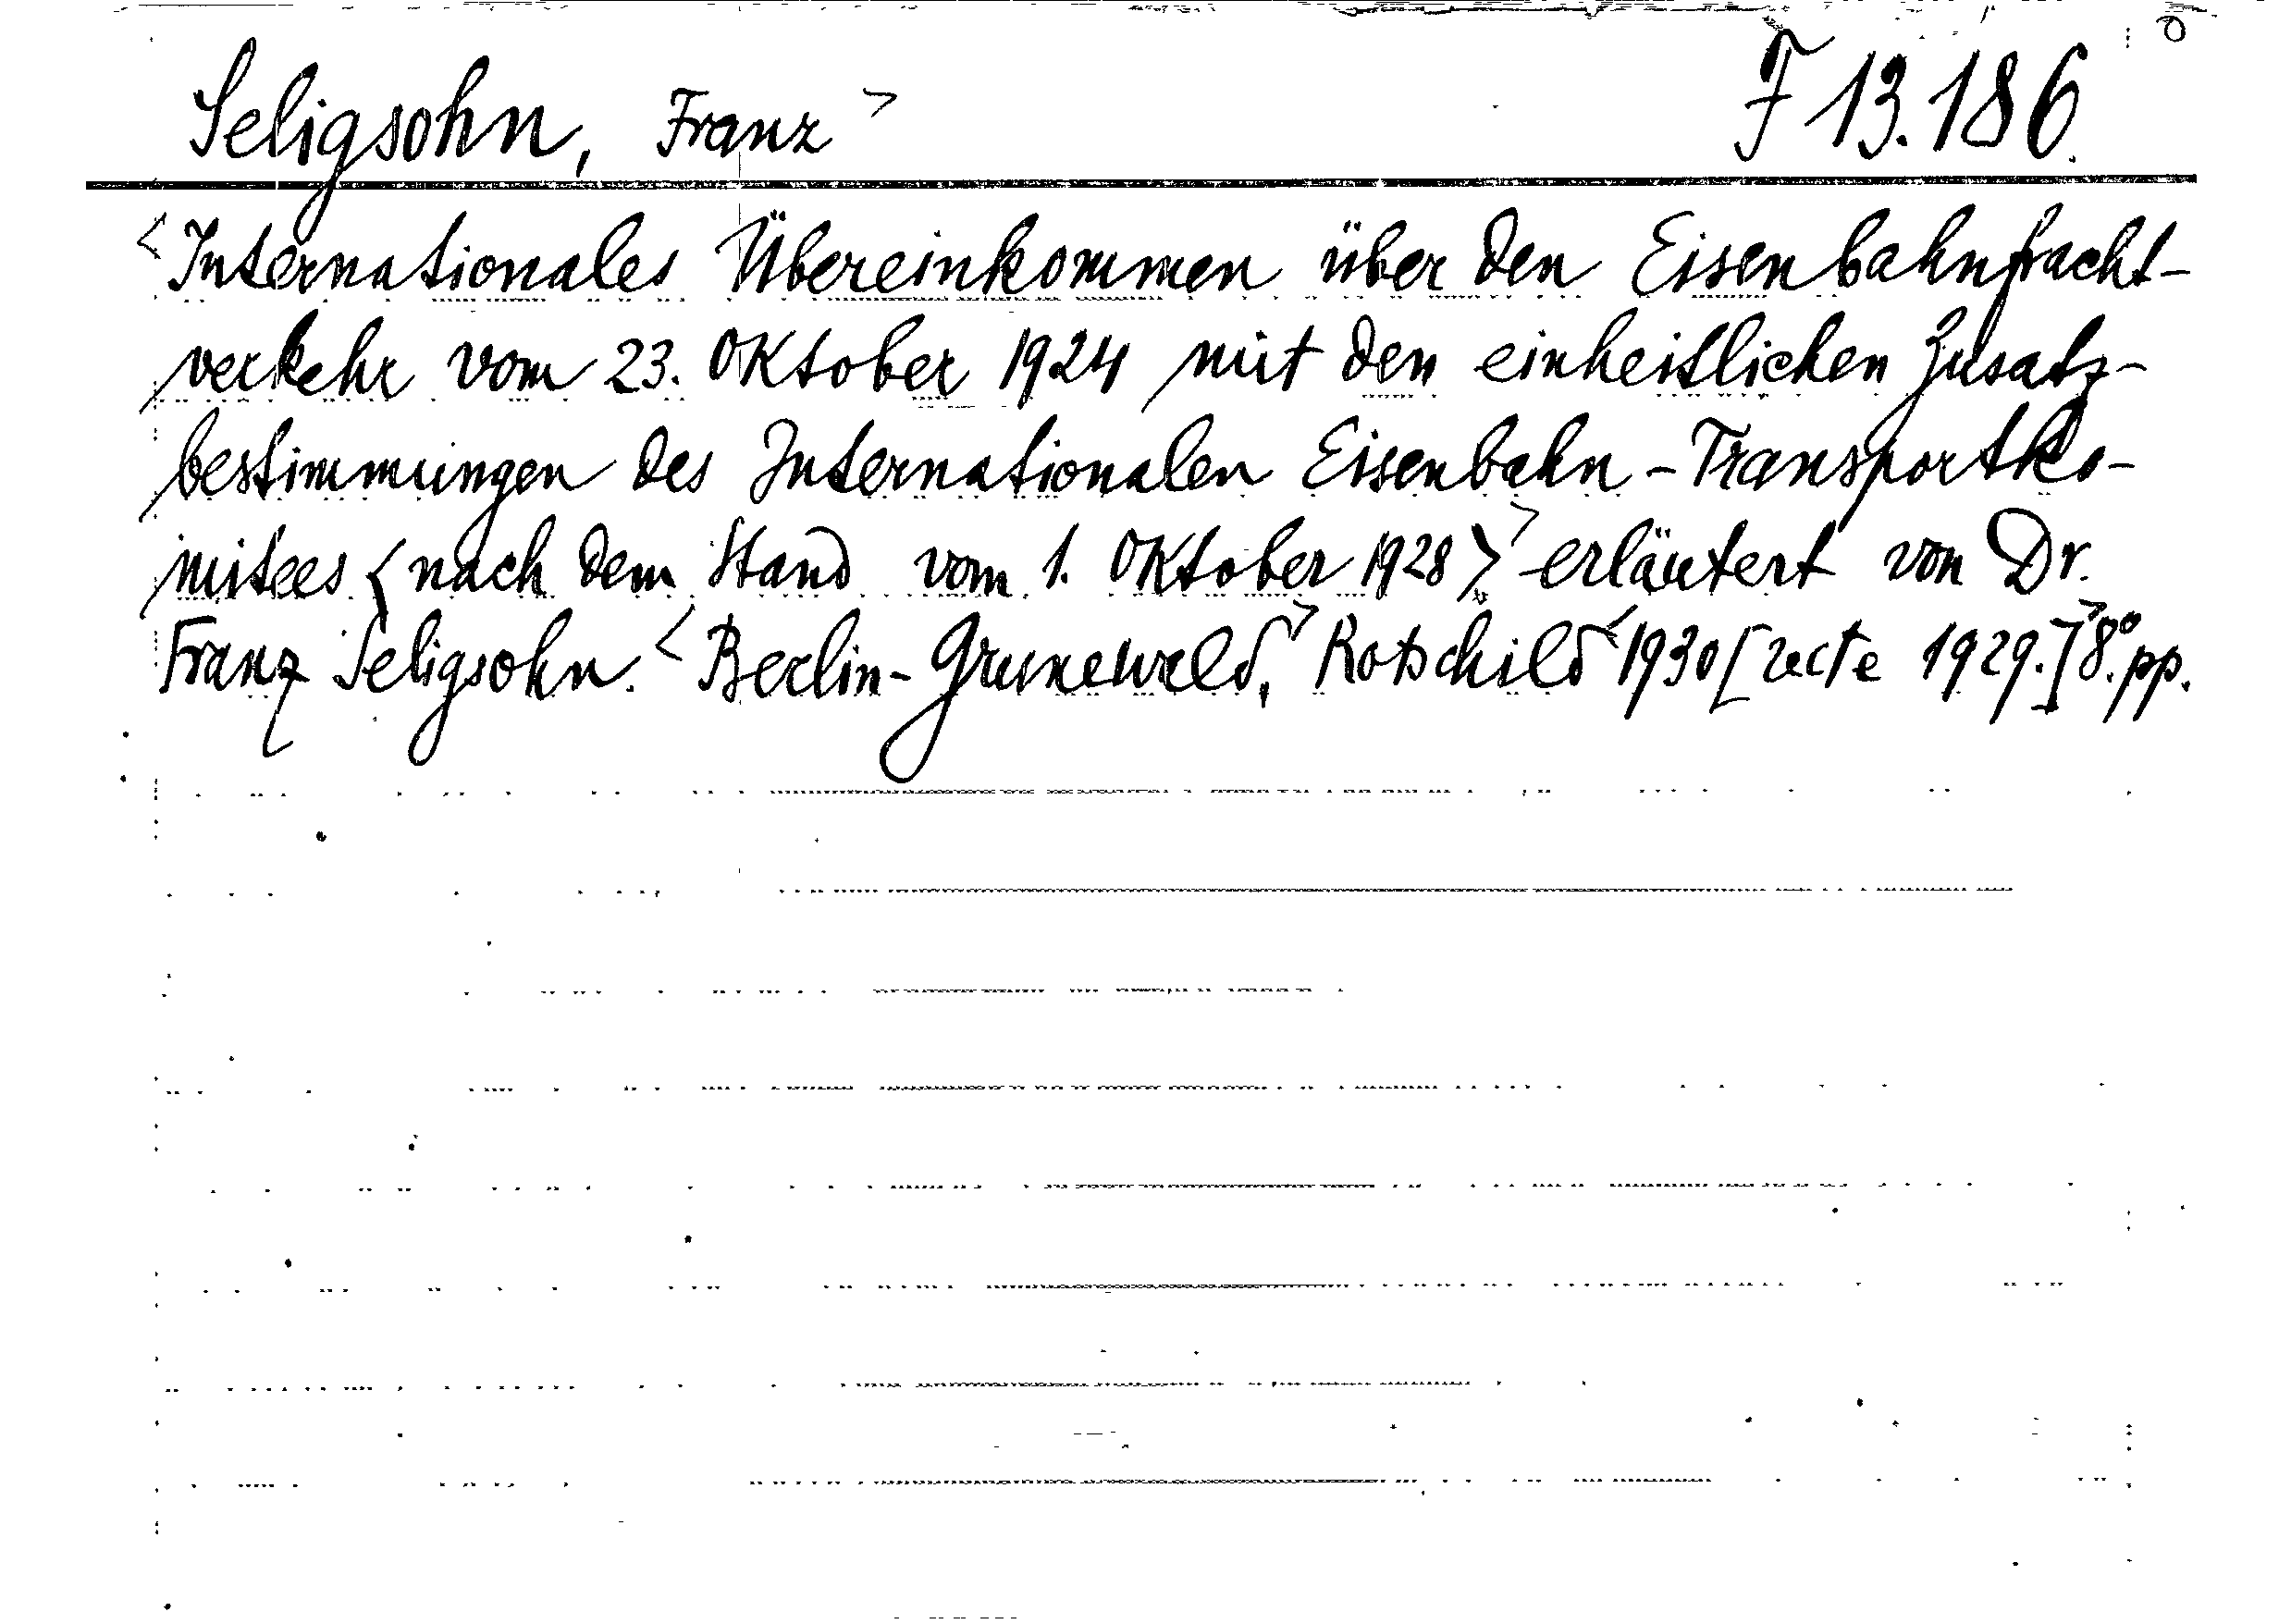 Seligsohn, Franz > F 13.186.
<Internationales Übereinkommen über den Eisenbahnfracht-
verkehr vom 23. Oktober 1924 mit den einheitlichen Zusatz-
bestimmungen des Internationalen Eisenbahn-Transportko-
mitees <nach dem Stand vom 1. Oktober 1928>> erläutert von Dr.
Franz Seligsohn. <Berlin-Grunewald,> Rotschild <1930 [recte 1929.]> 8° pp.